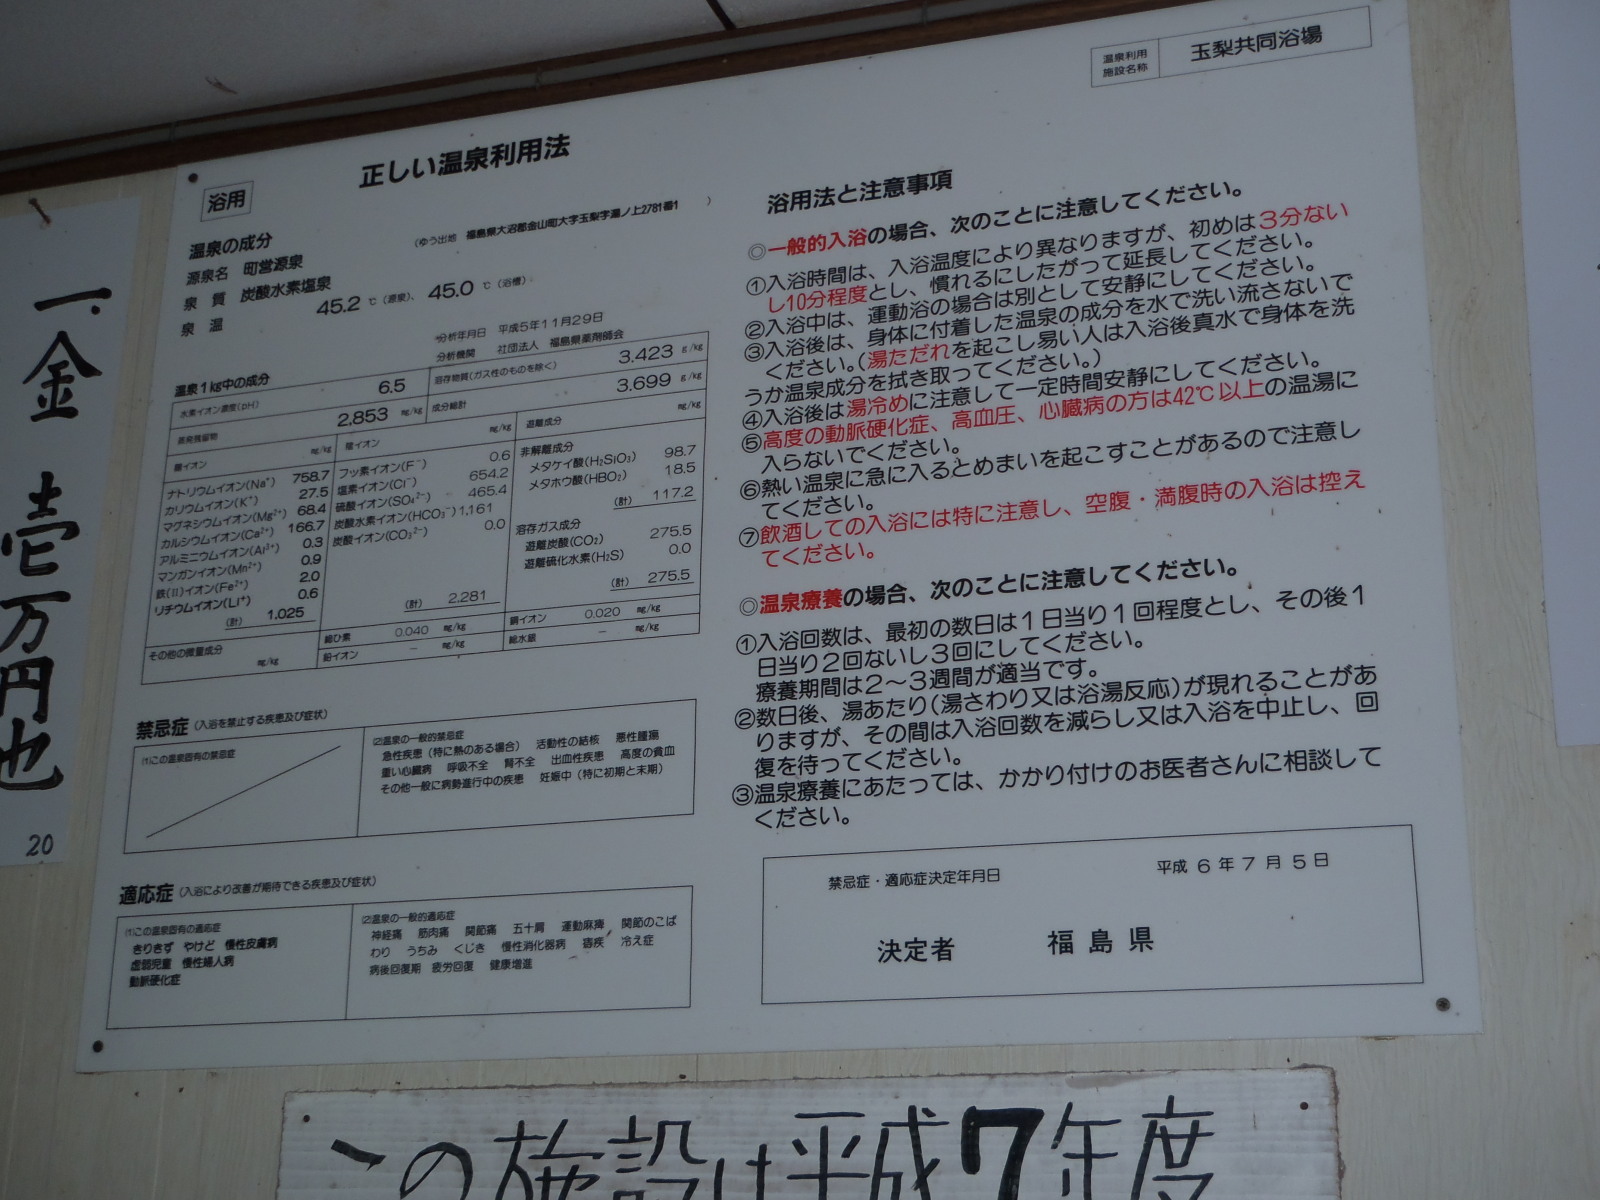 温泉利用施設名称 玉梨共同浴場
正しい温泉利用法
浴用
温泉の成分
(ゆう出地 福島県大沼郡金山町大字玉梨字湯ノ上2781番1 )
源泉名 町営源泉
泉質 炭酸水素塩泉
泉温 45.2 ℃(源泉)、 45.0 ℃(浴槽)
分析年月日 平成5年11月29日
分析機関 社団法人 福島県薬剤師会
温泉1kg中の成分
水素イオン濃度(pH) 6.5
溶存物質(ガス性のものを除く) 3.423 g/kg
蒸発残留物 2,853 mg/kg
成分総計 3.699 g/kg
陽イオン mg/kg
ナトリウムイオン(Na⁺) 758.7
カリウムイオン(K⁺) 27.5
マグネシウムイオン(Mg²⁺) 68.4
カルシウムイオン(Ca²⁺) 166.7
アルミニウムイオン(Al³⁺) 0.3
マンガンイオン(Mn²⁺) 0.9
鉄(II)イオン(Fe²⁺) 2.0
リチウムイオン(Li⁺) 0.6
(計) 1.025
陰イオン mg/kg
フッ素イオン(F⁻) 0.6
塩素イオン(Cl⁻) 654.2
硫酸イオン(SO₄²⁻) 465.4
炭酸水素イオン(HCO₃⁻) 1,161
炭酸イオン(CO₃²⁻) 0.0
(計) 2.281
遊離成分 mg/kg
非解離成分
メタケイ酸(H₂SiO₃) 98.7
メタホウ酸(HBO₂) 18.5
(計) 117.2
溶存ガス成分
遊離炭酸(CO₂) 275.5
遊離硫化水素(H₂S) 0.0
(計) 275.5
その他の微量成分 mg/kg
総ひ素 0.040 mg/kg
銅イオン 0.020 mg/kg
鉛イオン － mg/kg
総水銀 － mg/kg
禁忌症 (入浴を禁止する疾患及び症状)
(1)この温泉固有の禁忌症
(2)温泉の一般的禁忌症
急性疾患(特に熱のある場合) 活動性の結核 悪性腫瘍
重い心臓病 呼吸不全 腎不全 出血性疾患 高度の貧血
その他一般に病勢進行中の疾患 妊娠中(特に初期と末期)
適応症 (入浴により改善が期待できる疾患及び症状)
(1)この温泉固有の適応症
きりきず やけど 慢性皮膚病
虚弱児童 慢性婦人病
動脈硬化症
(2)温泉の一般的適応症
神経痛 筋肉痛 関節痛 五十肩 運動麻痺 関節のこば
わり うちみ くじき 慢性消化器病 痔疾 冷え症
病後回復期 疲労回復 健康増進
浴用法と注意事項
◎一般的入浴の場合、次のことに注意してください。
①入浴時間は、入浴温度により異なりますが、初めは3分ない
し10分程度とし、慣れるにしたがって延長してください。
②入浴中は、運動浴の場合は別として安静にしてください。
③入浴後は、身体に付着した温泉の成分を水で洗い流さないで
ください。(湯ただれを起こし易い人は入浴後真水で身体を洗
うか温泉成分を拭き取ってください。)
④入浴後は湯冷めに注意して一定時間安静にしてください。
⑤高度の動脈硬化症、高血圧、心臓病の方は42℃以上の温湯に
入らないでください。
⑥熱い温泉に急に入るとめまいを起こすことがあるので注意し
てください。
⑦飲酒しての入浴には特に注意し、空腹・満腹時の入浴は控え
てください。
◎温泉療養の場合、次のことに注意してください。
①入浴回数は、最初の数日は1日当り1回程度とし、その後1
日当り2回ないし3回にしてください。
療養期間は2〜3週間が適当です。
②数日後、湯あたり(湯さわり又は浴湯反応)が現れることがあ
りますが、その間は入浴回数を減らし又は入浴を中止し、回
復を待ってください。
③温泉療養にあたっては、かかり付けのお医者さんに相談して
ください。
禁忌症・適応症決定年月日 平成 6 年 7 月 5 日
決定者 福島県
一、金 壱万円也
20
この施設は平成7年度